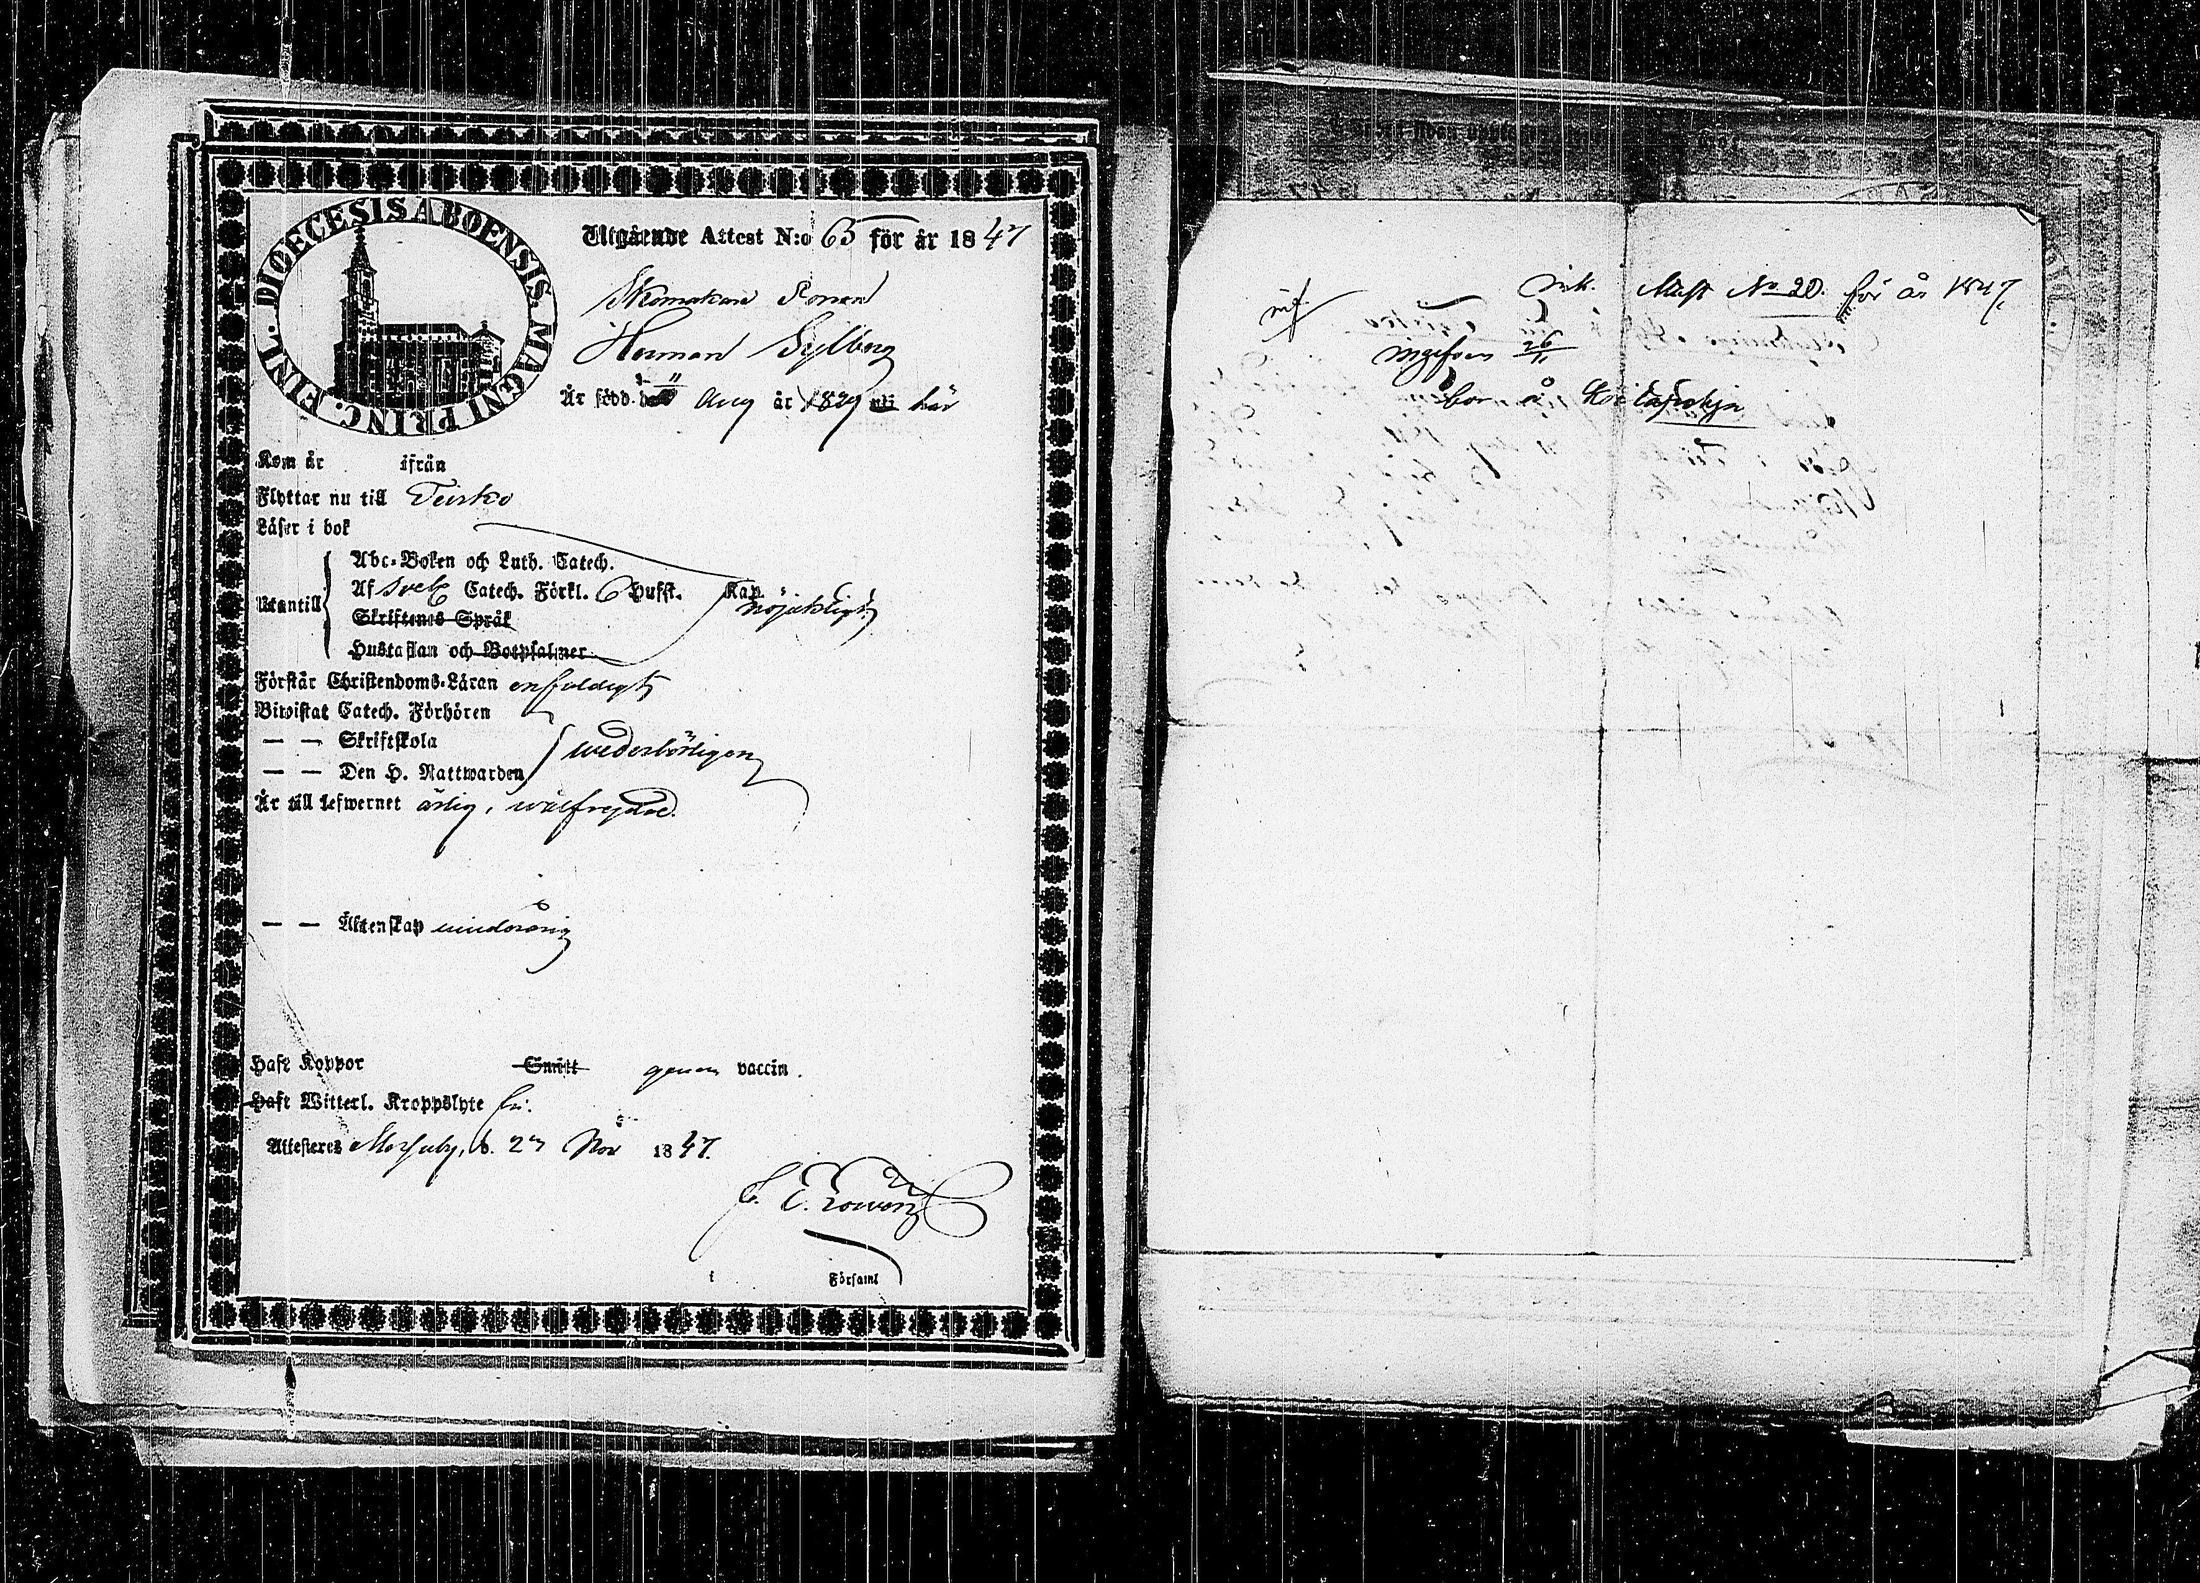 DIOECESIS ABOENSIS. MAGNI PRINC. FINL.
Utgående Attest N:o 63 för år 1847
Skomakare Sonen
Herman Sylberg
Är född d. 11 Aug år 1829 uti här
Kom år ifrån
Flyttar nu till Teisko
Läser i bok
Utantill
Abc-Boken och Luth. Catech.
Af Sveb. Catech. Förkl. 6 Hufst. Kap. nöjaktligt
Skriftenes Språk
Hustaflan och Botpsalmer
Förstår Christendoms-Läran enfaldigt
Biwistat Catech. Förhören
— — Skriftskola
wederbörligen
— — Den H. Nattwarden
Är till lefwernet ärlig, wälfrejdad.
— — Äktenskap minderårig
Haft Koppor Smitt genom vaccin.
Haft Witterl. Kroppslyte
Attesteras d. 27 Nov 1847.
i Församl
ink. Attest No 20. för år 1847.
införd 26
bor å